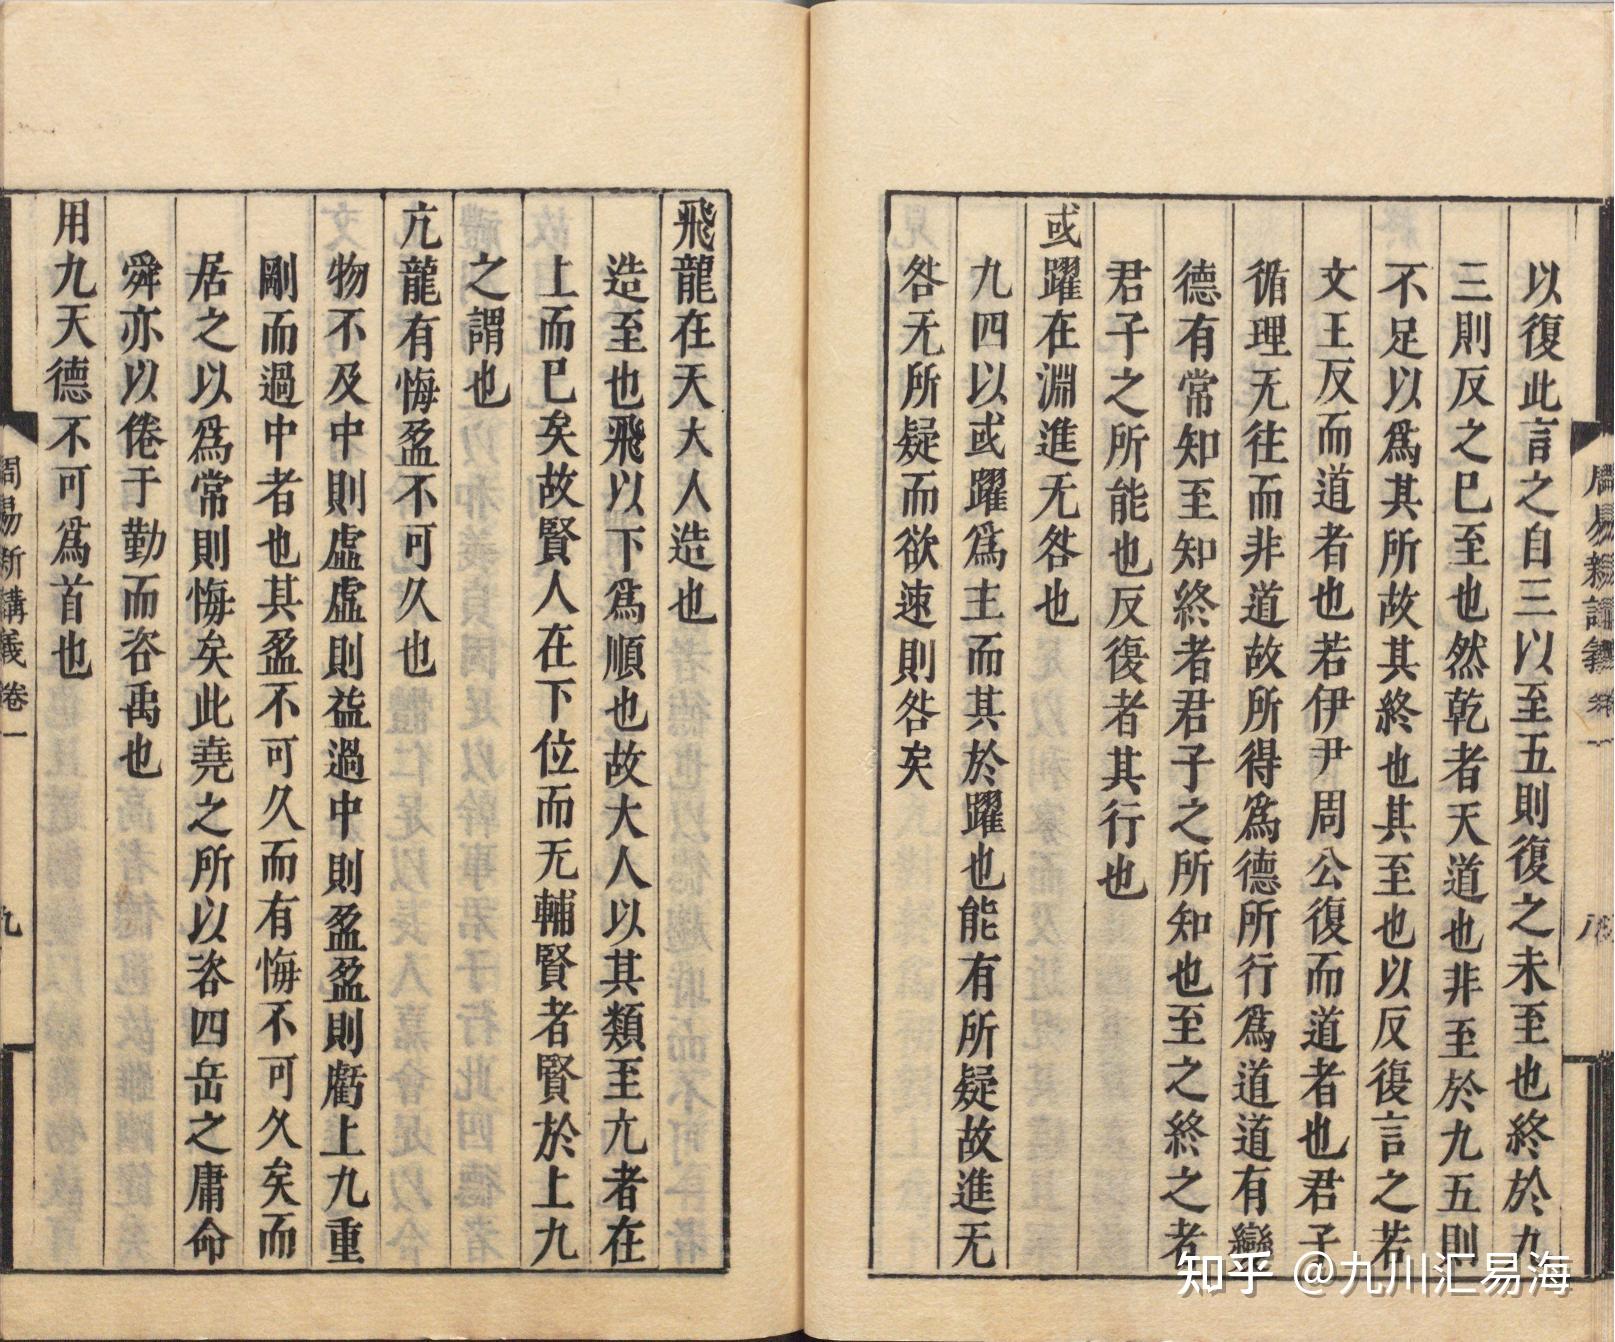 以復此言之自三以至五則復之未至也終於九
三則反之巳至也然乾者天道也非至於九五則
不足以爲其所故其終也其至也以反復言之若
文王反而道者也若伊尹周公復而道者也君子
循理无往而非道故所得爲德所行爲道道有變
德有常知至知終者君子之所知也至之終之者
君子之所能也反復者其行也
或躍在淵進无咎也
九四以或躍爲主而其於躍也能有所疑故進无
咎无所疑而欲速則咎矣
周易新講義 卷一 八
飛龍在天大人造也
造至也飛以下爲順也故大人以其類至亢者在
上而巳矣故賢人在下位而无輔賢者賢於上九
之謂也
亢龍有悔盈不可久也
物不及中則虛虛則益過中則盈盈則虧上九重
剛而過中者也其盈不可久而有悔不可久矣而
居之以爲常則悔矣此堯之所以咨四岳之庸命
舜亦以倦于勤而咨禹也
用九天德不可爲首也
周易新講義 卷一 九
知乎 @九川汇易海